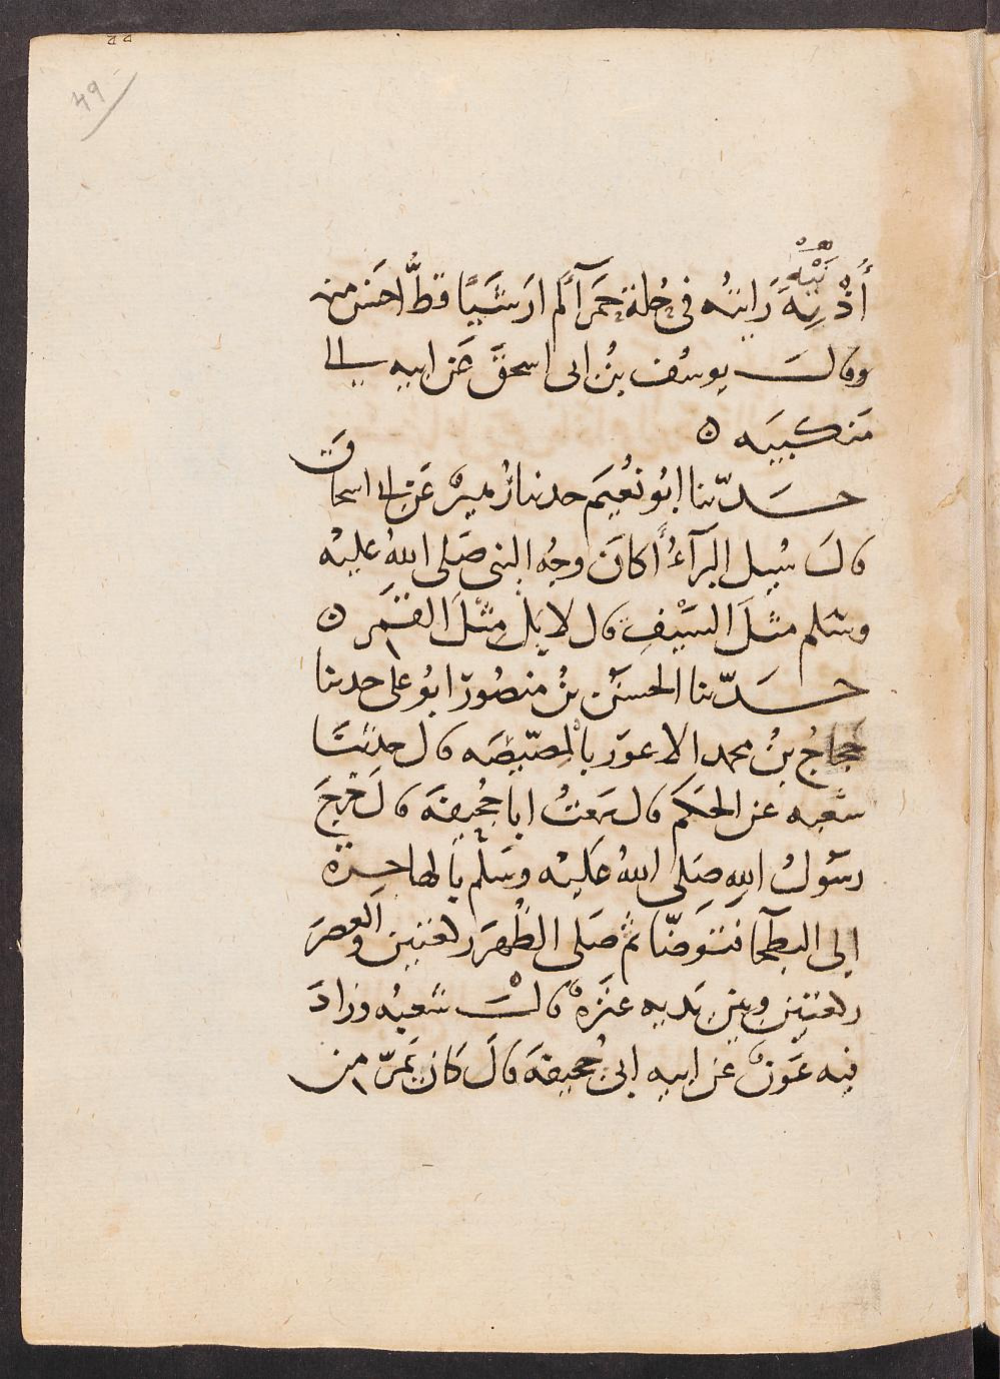 49
أُذْنِهِ رَايتُه فى حُلة حَمرآ لم ارَ شَيًا قطُّ احسَن منه
وقالَ يوسُف بنُ ابى اسحقَ عَن ابيه الى
مَنكبيَه ه
حدّثنا ابُو نعُيَم حدثنا زُهيرٌ عَن ابى اسحاقَ
قالَ سُيِل البرآءُ أكانَ وجهُ النبى صَلى اللهُ عليْه
وسَلم مثلَ السَيْفِ قال لا بَل مِثلَ القمَر ه
حدّثنا الحسَنُ بنُ منصُور ابوُ على حدثنا
حَجاجُ بنُ محمد الاعوَر بالمصّيصَه قال حدثنَا
شعبه عن الحكَم قال سَمعتُ ابا جُحيفَة قالَ خرجَ
رسَولُ اللهِ صَلى اللهُ عَليْه وسَلّم بالهاجِرة
إلى البطحآ فتوَضّا ثم صَلى الظُهرَ ركعتين والعصرَ
ركعتين وبين يَديه عنَزةٌ قالْت شعبُه وزادَ
فيه عَونٌ عَن ابيه ابى جُحيفةَ قالَ كانَ يَمرّ من